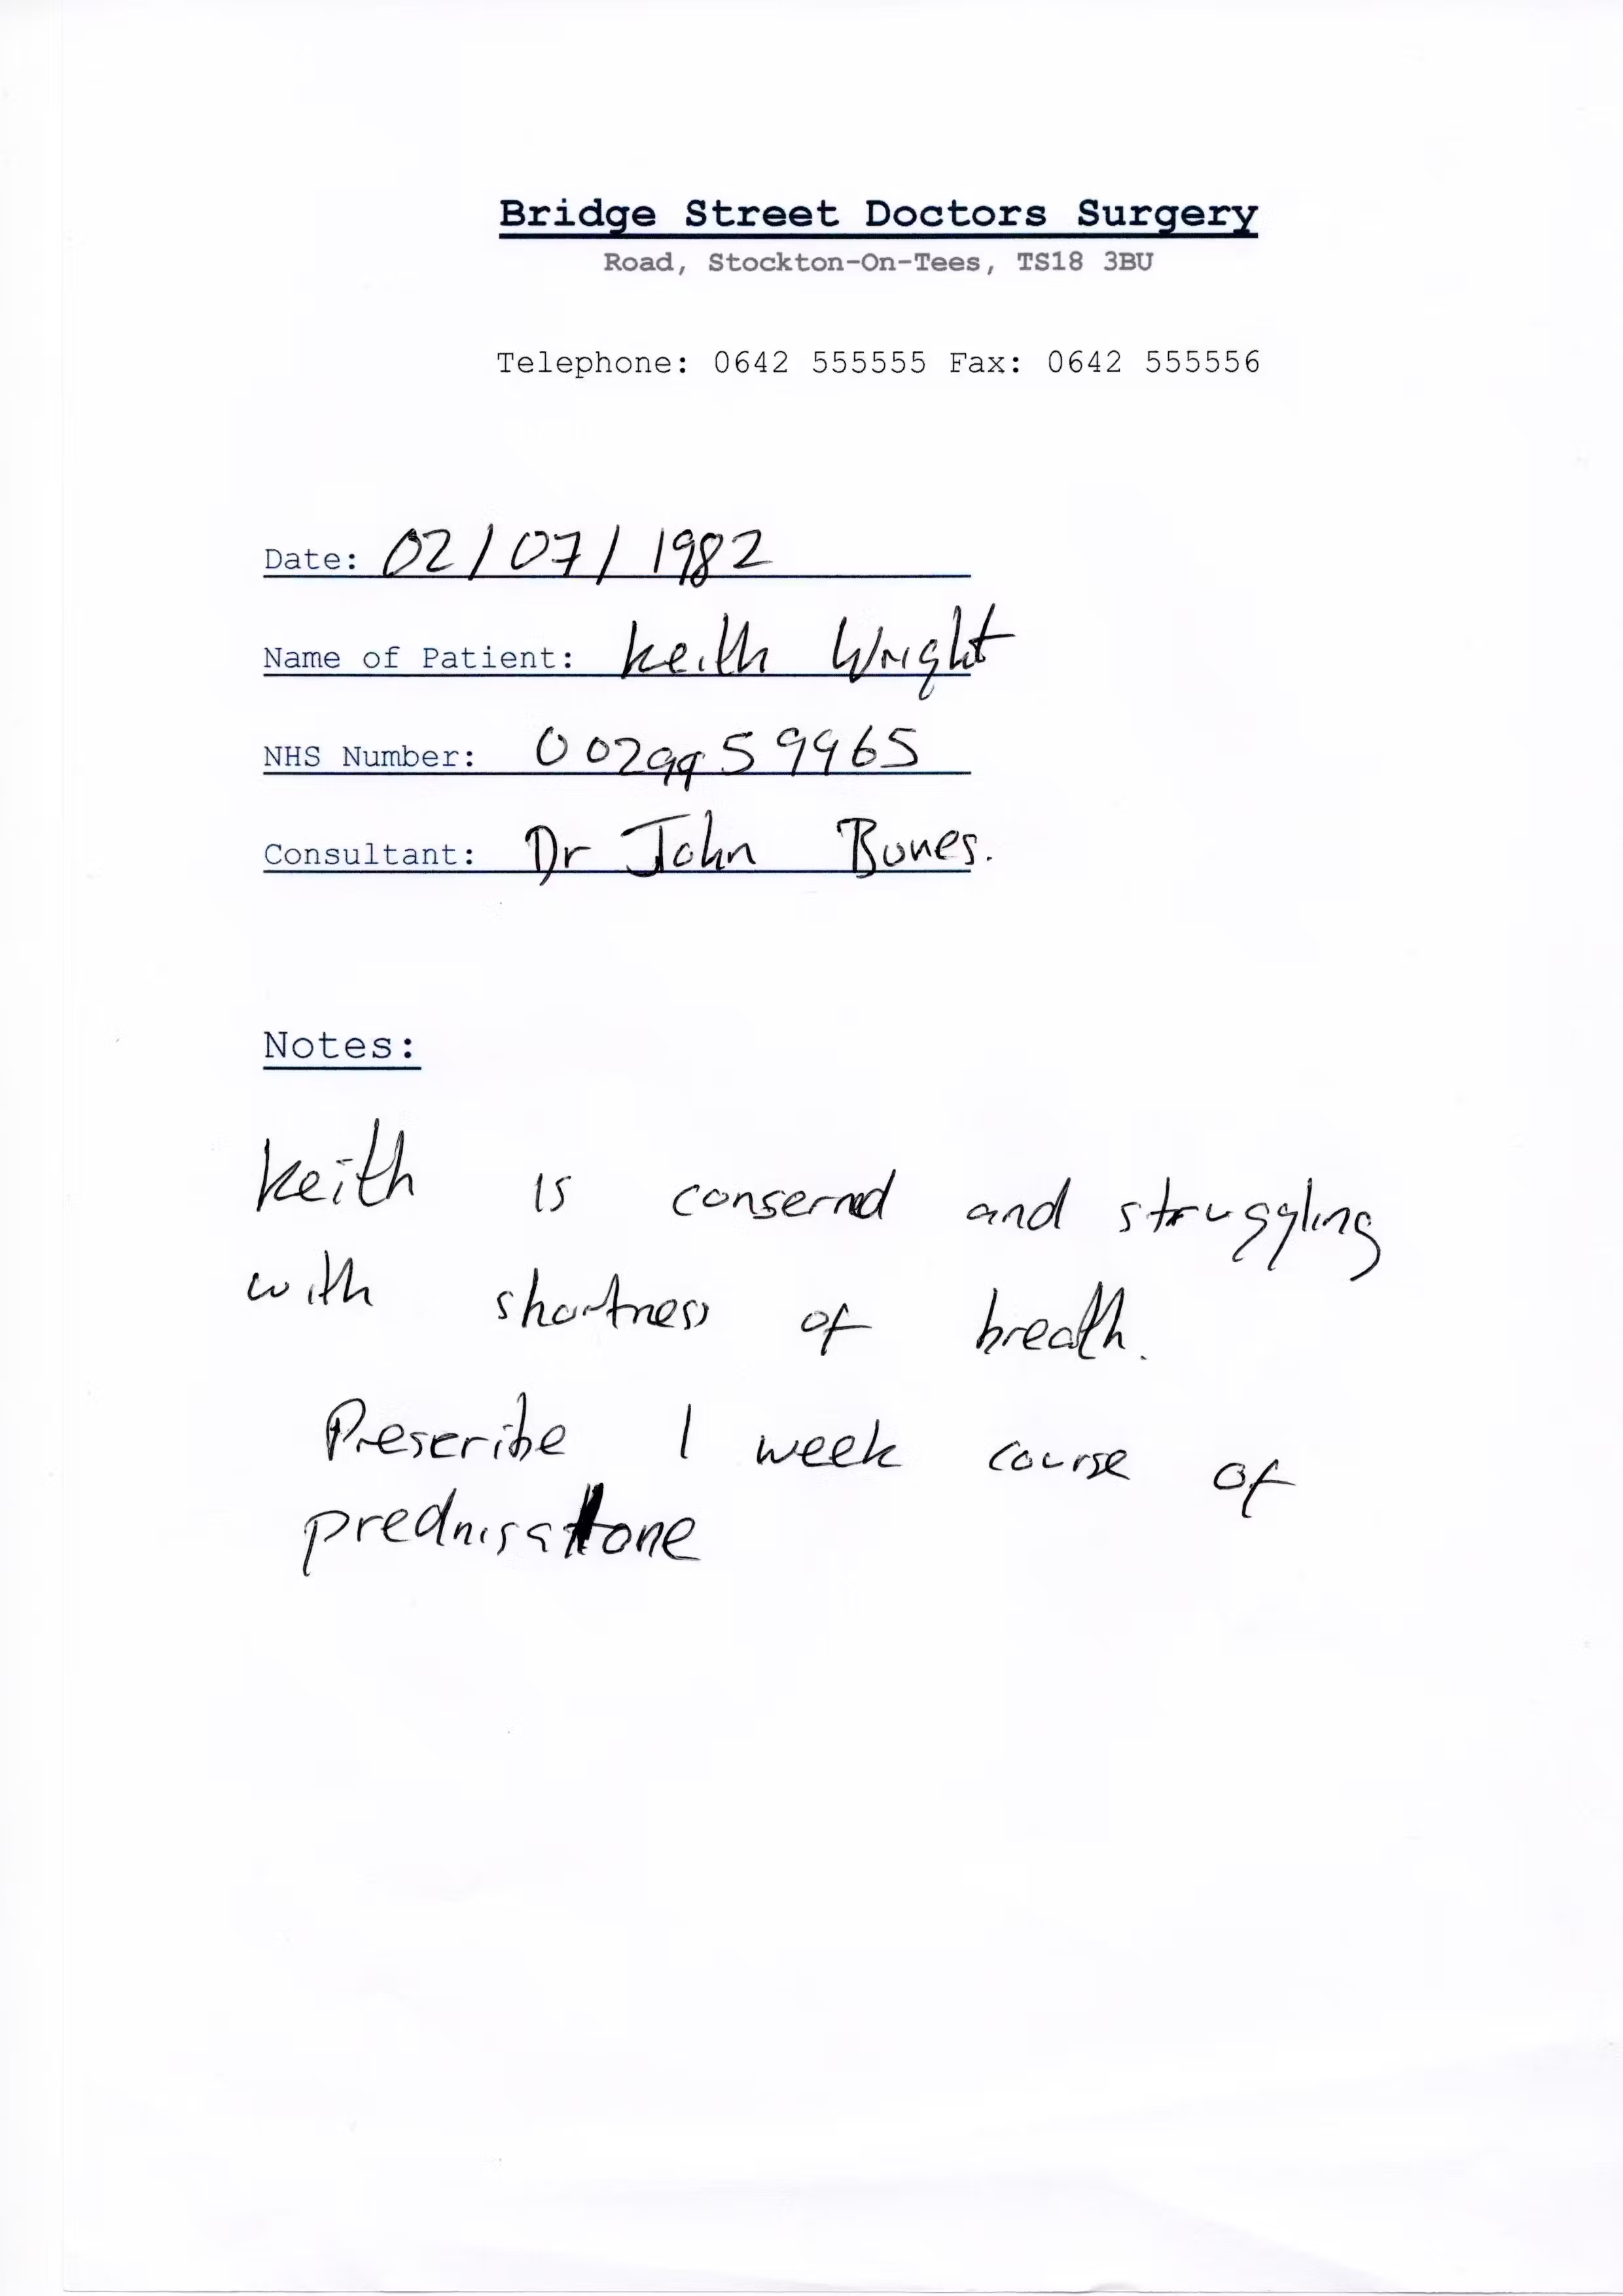 Bridge Street Doctors Surgery
Road, Stockton-On-Tees, TS18 3BU
Telephone: 0642 555555 Fax: 0642 555556
Date: 02/07/1982
Name of Patient: Keith Wright
NHS Number: 0029959965
Consultant: Dr John Bones.
Notes:
Keith is consernd and struggling
with shortness of breath.
Prescribe 1 week course of